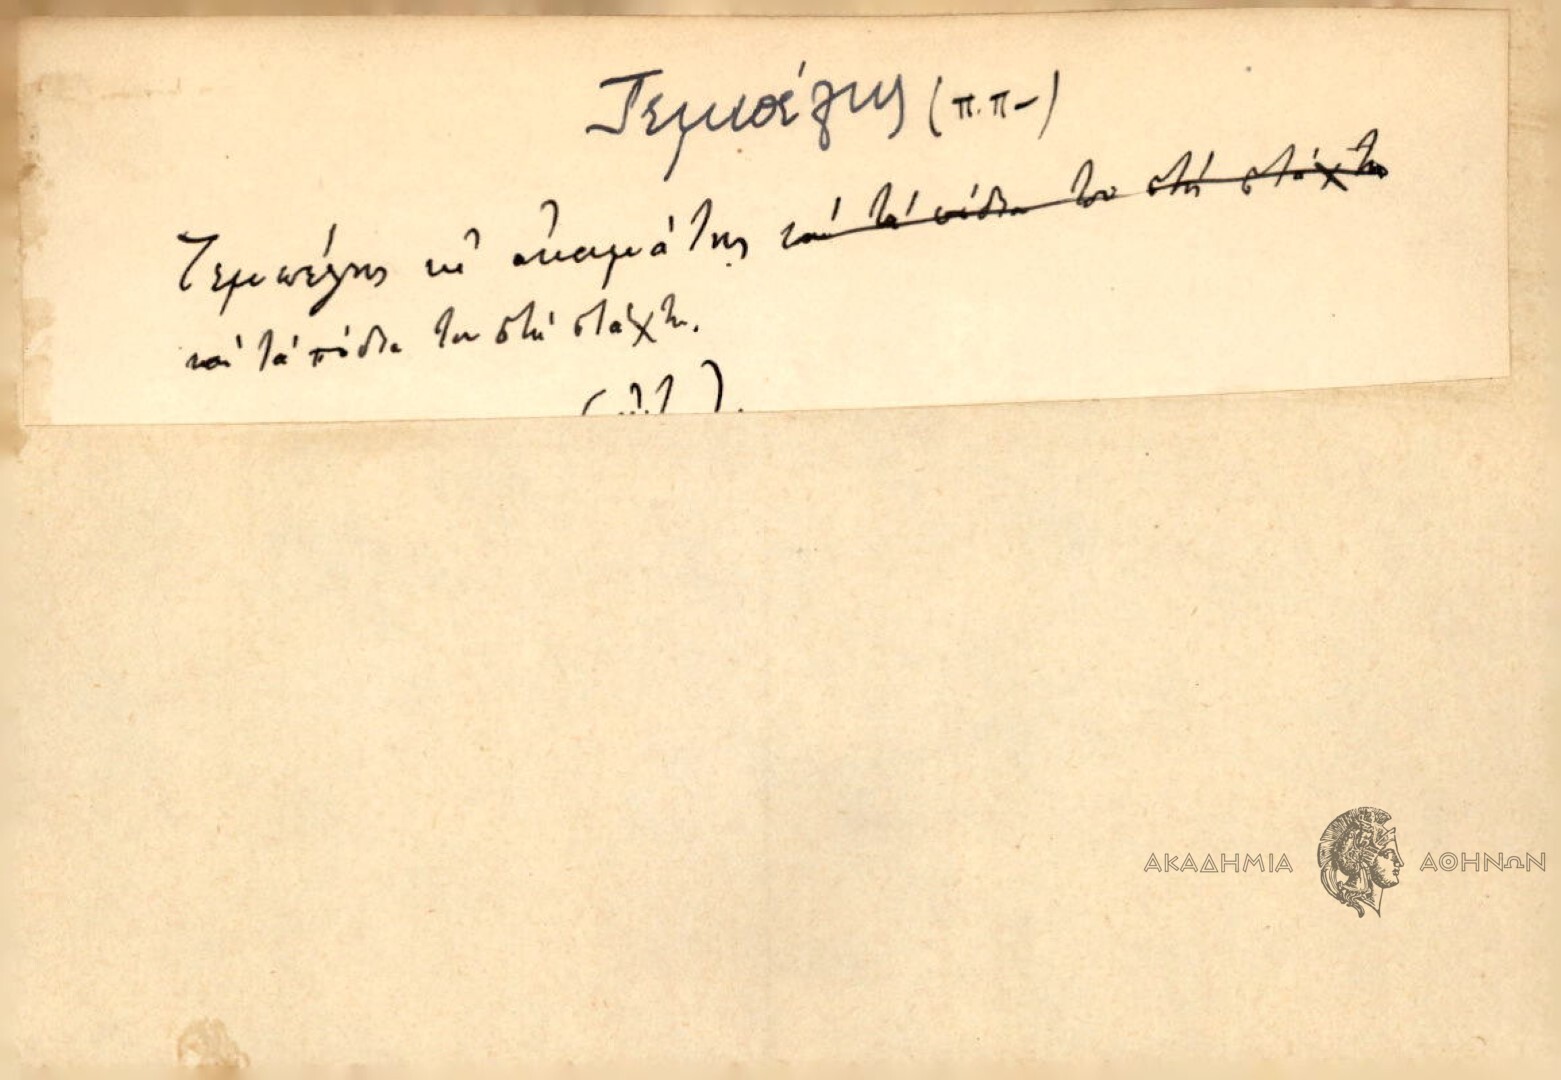 Τεμπέλης (π.π-)
Τεμπέλης κι ἀκαμάτης καί τά πόδια του στή στάχτη
καί τά πόδια του στή στάχτη.
ΑΚΑΔΗΜΙΑ ΑΘΗΝΩΝ